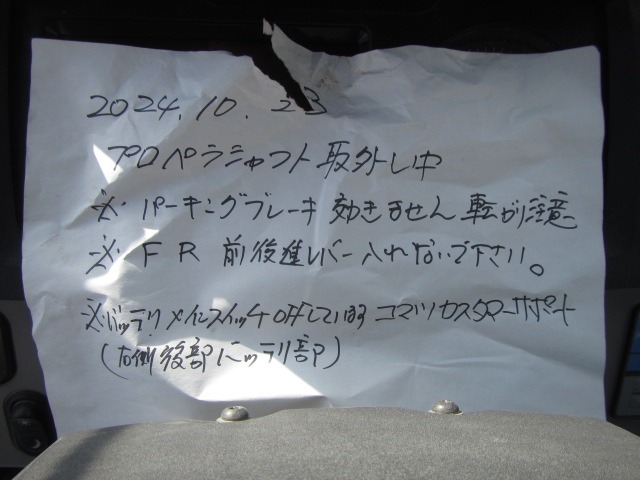 2024.10.23
プロペラシャフト取外し中
※ パーキングブレーキ効きません転がり注意
※ F R 前後進レバー入れないで下さい。
※バッテリメインスイッチOFFしています コマツカスタマーサポート
(右側後部バッテリ部)